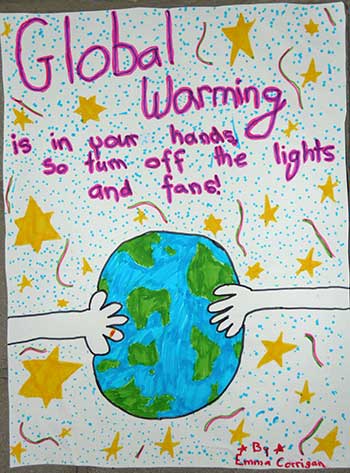 Global
Warming
is in your hands,
so turn off the lights
and fans!
By
Emma Corrigan